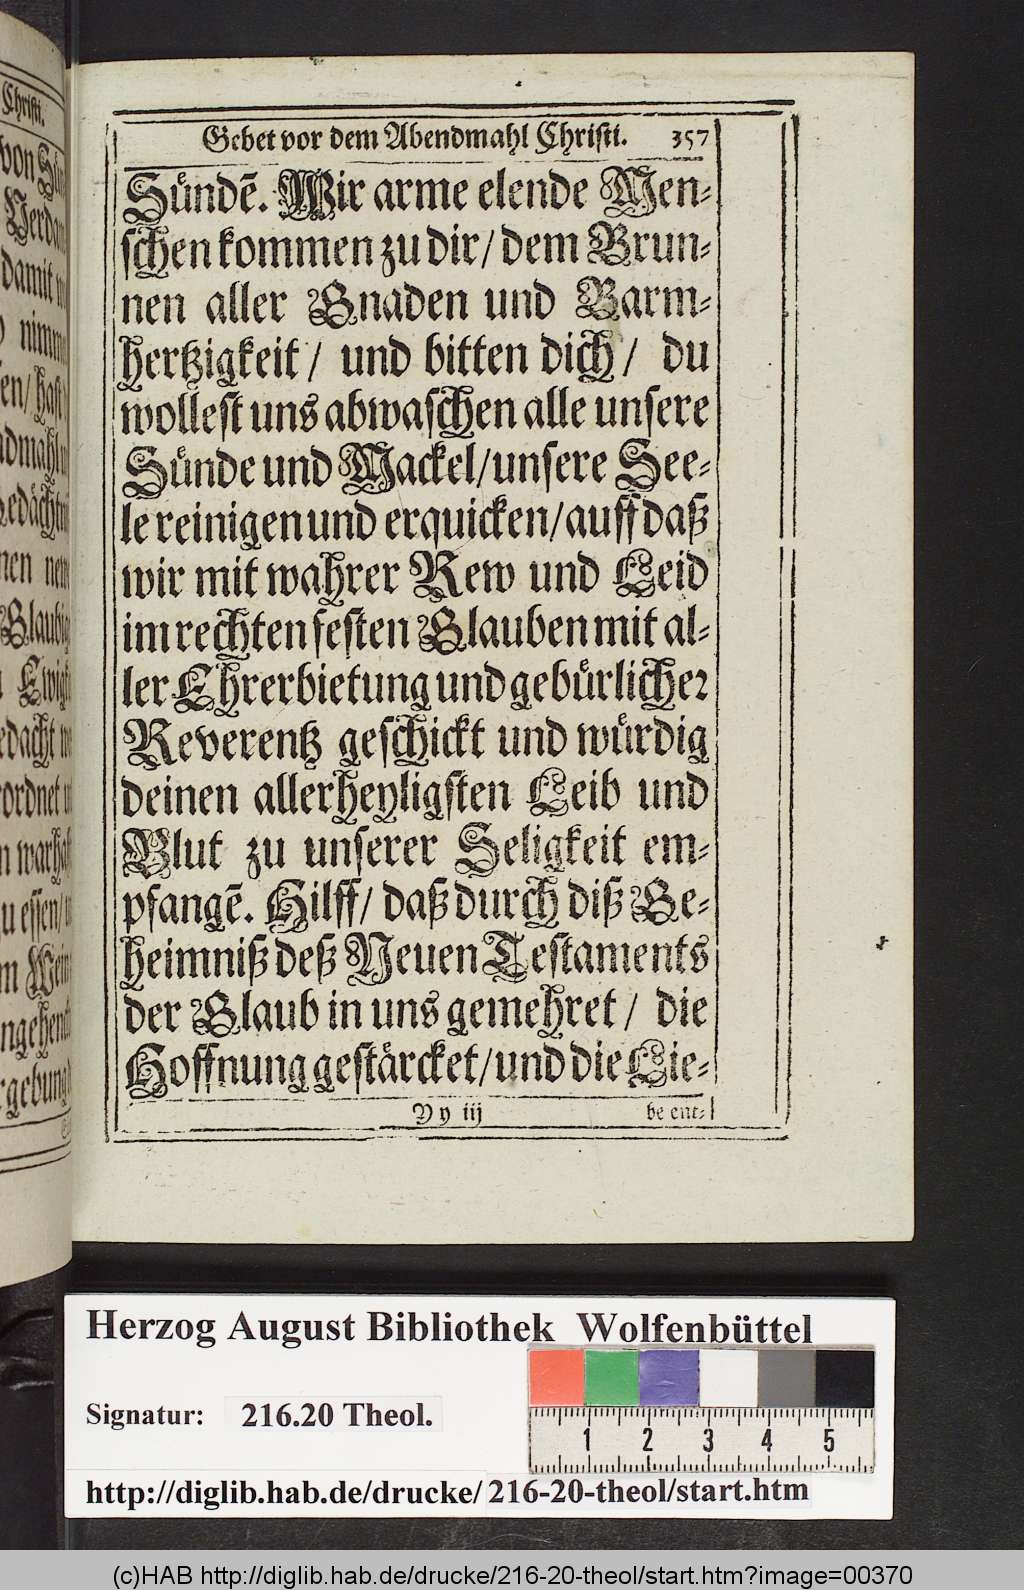 Christi.
von
Verdam
damit
nimm
en/ hast
admahl
Gedächtn
nen
Glaubig
Ewig
edacht
ordnet
n warhaf
u essen/
m Wein
ngehen
rgebung
Gebet vor dem Abendmahl Christi. 357
Sündẽ. Wir arme elende Men-
schen kommen zu dir/ dem Brun-
nen aller Gnaden und Barm-
hertzigkeit/ und bitten dich/ du
wollest uns abwaschen alle unsere
Sünde und Mackel/ unsere See-
le reinigen und erquicken/ auff daß
wir mit wahrer Rew und Leid
im rechten festen Glauben mit al-
ler Ehrerbietung und gebürlicher
Reverentz geschickt und würdig
deinen allerheyligsten Leib und
Blut zu unserer Seligkeit em-
pfangẽ. Hilff/ daß durch diß Ge-
heimniß deß Neuen Testaments
der Glaub in uns gemehret/ die
Hoffnung gestärcket/ und die Lie-
Yy iij be ent-
Herzog August Bibliothek Wolfenbüttel
Signatur: 216.20 Theol.
1 2 3 4 5
http://diglib.hab.de/drucke/216-20-theol/start.htm
(c)HAB http://diglib.hab.de/drucke/216-20-theol/start.htm?image=00370